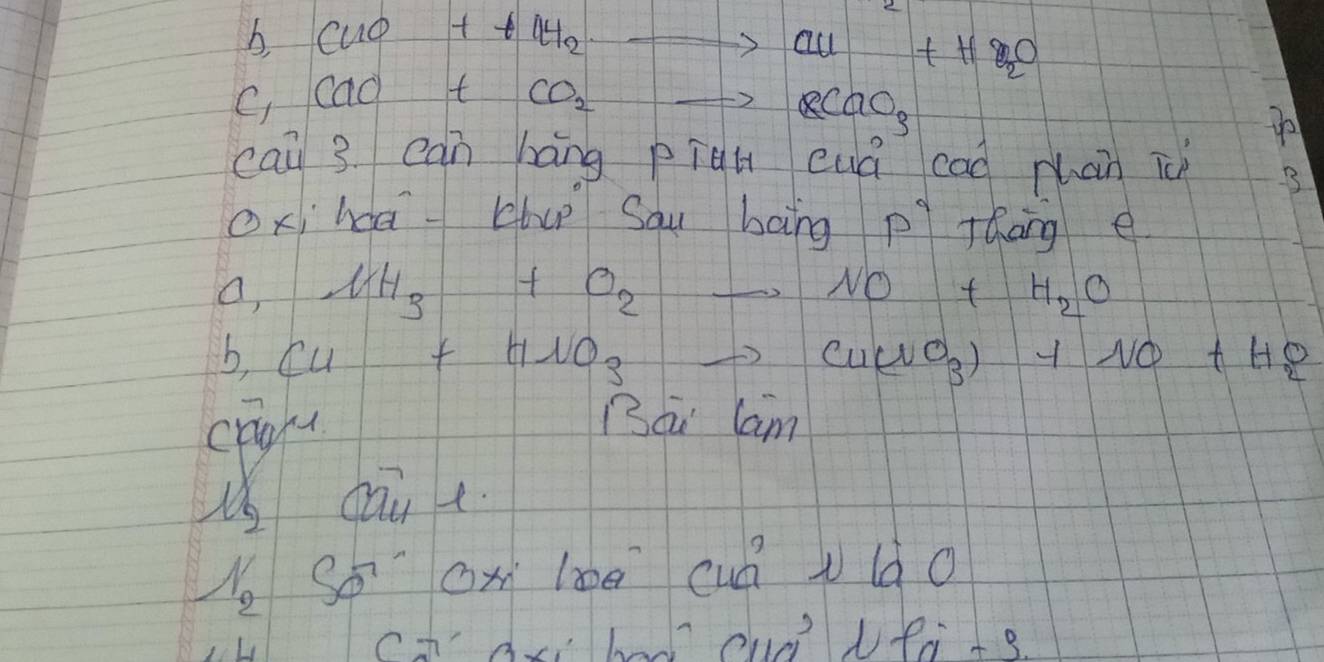 b, CuO + + H2 → Cu + H2O
c, CaO + CO2 → CaO3
câu 3. cân bằng PTHH của các phản
oxi hoá - khử sau bằng p² thăng e
a, NH3 + O2 → NO + H2O
b, Cu + HNO3 → Cu(NO3) + NO + H2O
Bài làm
N2 câu 1.
N2 Số oxi hoá của N là 0
Số oxi hoá của N là -3